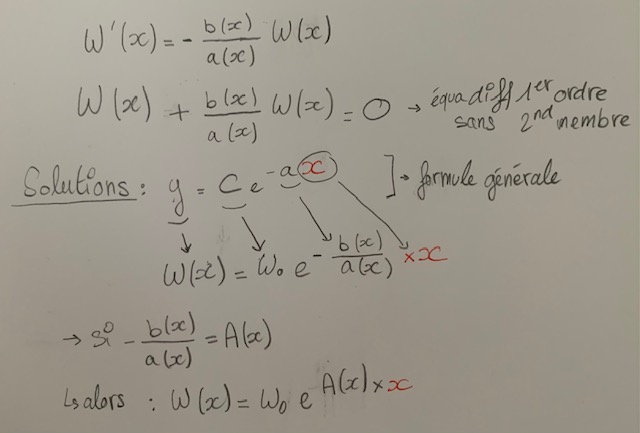 W'(x) = - b(x)/a(x) W(x)
W(x) + b(x)/a(x) W(x) = 0 → équa diff 1er ordre
sans 2nd membre
Solutions : y = C e^{-a x} ] → formule générale
W(x) = W₀ e^{- b(x)/a(x) × x}
→ si - b(x)/a(x) = A(x)
↳ alors : W(x) = W₀ e^{A(x) × x}